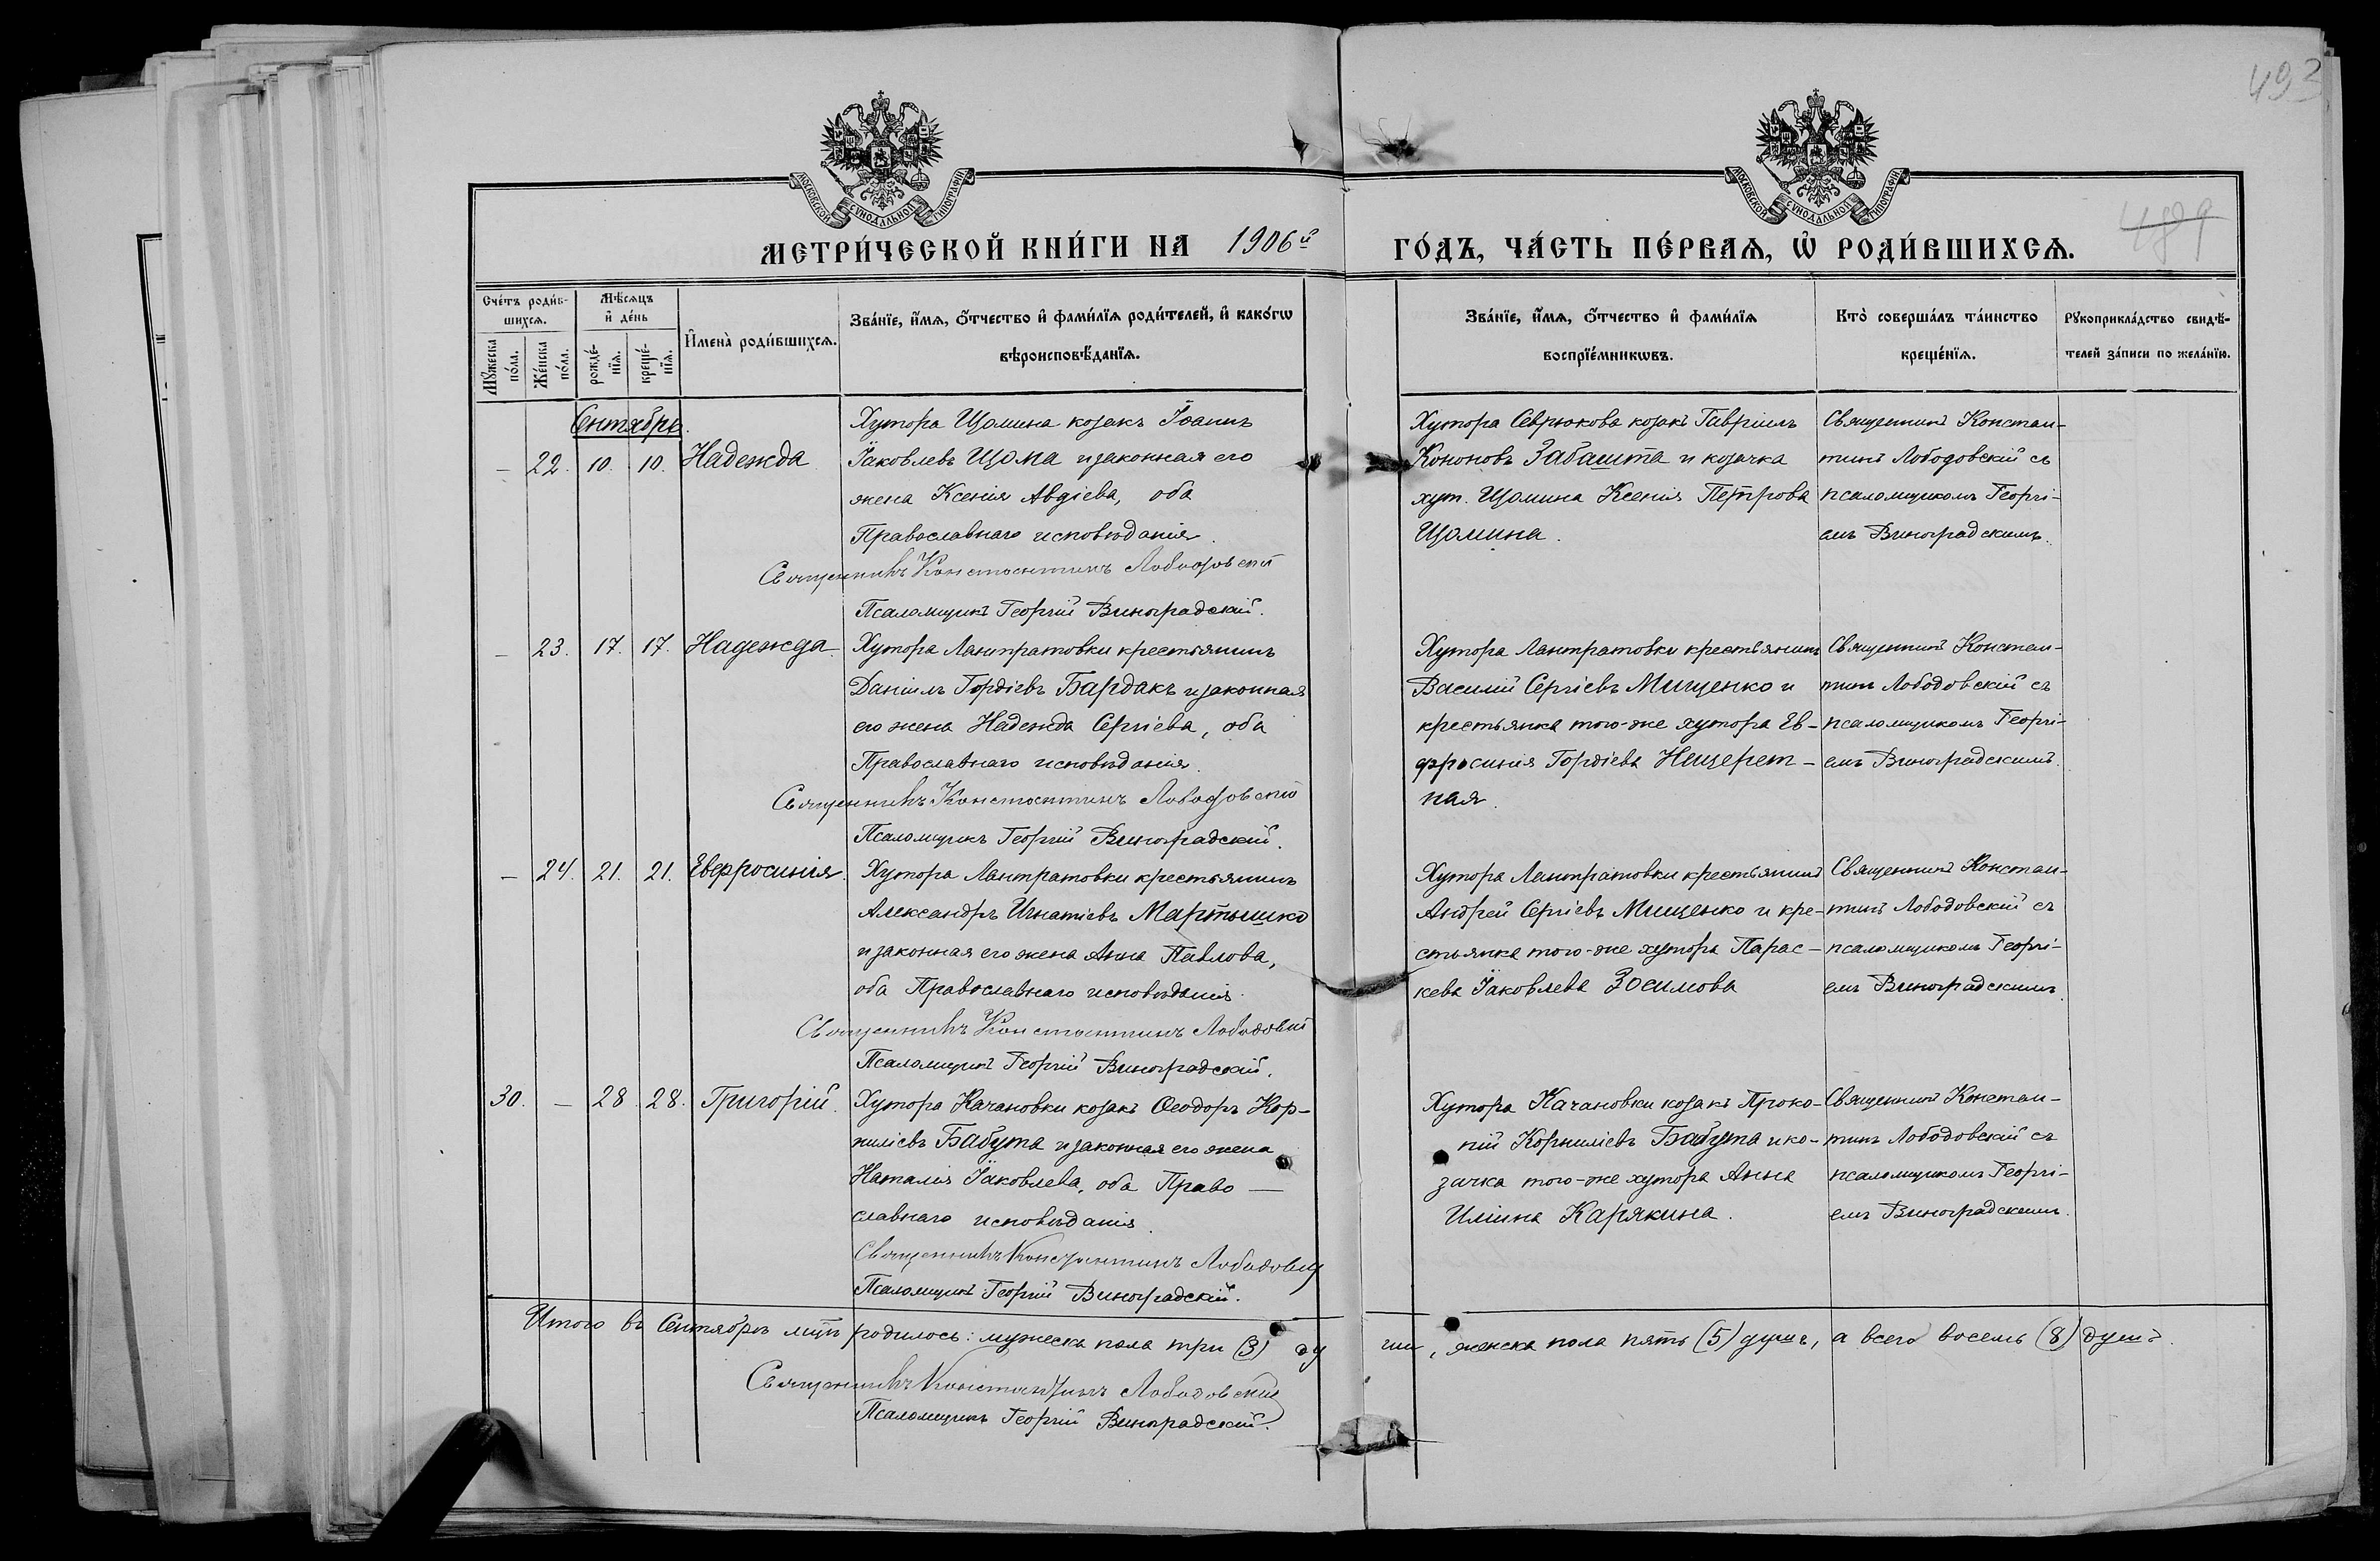 493
МОСКОВСКОЙ СѴНОДАЛЬНОЙ ТИПОГРАФІИ
МОСКОВСКОЙ СѴНОДАЛЬНОЙ ТИПОГРАФІИ
489
МЕТРИ́ЧЕСКОЙ КНИ́ГИ НА 1906й ГО́ДЪ, ЧА́СТЬ ПЕ́РВАѦ, Ѡ҆ РОДИ́ВШИХСѦ.
Сче́тъ роди́в-
шихсѧ.
Мѣ́сѧцъ
и҆ де́нь
Мꙋ́жеска
по́ла.
Же́нска
по́ла.
рожде́-
нїѧ.
креще́-
нїѧ.
И҆мена̀ роди́вшихсѧ.
Зва́нїе, и҆́мѧ, ѻ҆́тчество и҆ фами́лїѧ роди́телей, и҆ како́гѡ
вѣроисповѣ́данїѧ.
Зва́нїе, и҆́мѧ, ѻ҆́тчество и҆ фами́лїѧ
воспрїе́мникѡвъ.
Кто̀ соверша́лъ та́инство
креще́нїѧ.
Рꙋкоприкла́дство свидѣ́-
телей за́писи по жела́нїю.
Сентябрь.
— 22. 10. 10. Надежда
Хутора Щомина козакъ Іоаннъ
Іаковлевъ Щома и законная его
жена Ксенія Авдіева, оба
Православнаго исповѣданія.
Священникъ Константинъ Лободовскій
Псаломщикъ Георгій Виноградскій.
Хутора Севрюкова козакъ Гавріилъ
Кононовъ Забашта и козачка
хут. Щомина Ксенія Петрова
Щомина.
Священникъ Констан-
тинъ Лободовскій съ
псаломщикомъ Георгі-
емъ Виноградскимъ.
— 23. 17. 17. Надежда.
Хутора Лантратовки крестьянинъ
Даніилъ Гордіевъ Бардакъ и законная
его жена Надежда Сергіева, оба
Православнаго исповѣданія.
Священникъ Константинъ Лободовскій
Псаломщикъ Георгій Виноградскій.
Хутора Лантратовки крестьянинъ
Василій Сергіевъ Мищенко и
крестьянка того-же хутора Ев-
фросинія Гордіева Нещерет-
ная.
Священникъ Констан-
тинъ Лободовскій съ
псаломщикомъ Георгі-
емъ Виноградскимъ.
— 24. 21. 21. Евфросинія.
Хутора Лантратовки крестьянинъ
Александръ Игнатіевъ Мартышко
и законная его жена Анна Павлова,
оба Православнаго исповѣданія.
Священникъ Константинъ Лободовскій
Псаломщикъ Георгій Виноградскій.
Хутора Лантратовки крестьянинъ
Андрей Сергіевъ Мищенко и кре-
стьянка того-же хутора Парас-
кева Іаковлева Зосимова
Священникъ Констан-
тинъ Лободовскій съ
псаломщикомъ Георгі-
емъ Виноградскимъ.
30. — 28. 28. Григорій.
Хутора Качановки козакъ Ѳеодоръ Кор-
ниліевъ Бабута и законная его жена
Наталія Іаковлева, оба Право —
славнаго исповѣданія.
Священникъ Константинъ Лободовскій
Псаломщикъ Георгій Виноградскій.
Хутора Качановки козакъ Проко-
пій Корниліевъ Бабута и ко-
зачка того-же хутора Анна
Иліина Карякина.
Священникъ Констан-
тинъ Лободовскій съ
псаломщикомъ Георгі-
емъ Виноградскимъ.
Итого въ Сентябрѣ мцѣ родилось: мужеска пола три (3) ду ши, женска пола пять (5) душъ, а всего восемь (8) душъ.
Священникъ Константинъ Лободовскій
Псаломщикъ Георгій Виноградскій.